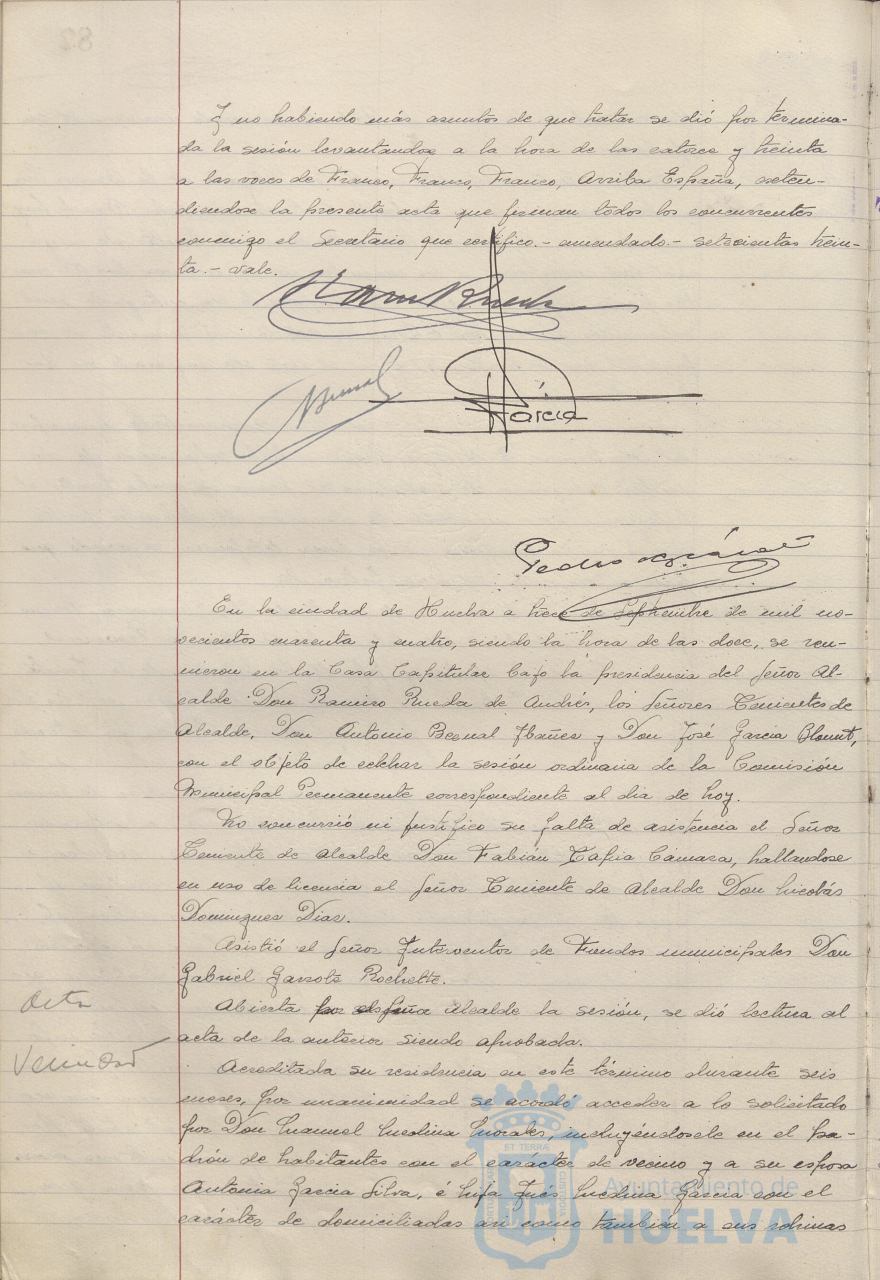 82
Y no habiendo más asuntos de que tratar se dió por termina-
da la sesión levantandose a la hora de las catorce y treinta
a las voces de Franco, Franco, Franco, Arriba España, exten-
diendose la presente acta que firman todos los concurrentes
conmigo el Secretario que certifico.- enmendado.- setecientas trein-
ta.- vale.
Ramiro Rueda
Bernal
García
Pedro
En la ciudad de Huelva a trece de Septiembre de mil no-
vecientos cuarenta y cuatro, siendo la hora de las doce, se reu-
nieron en la Casa Capitular bajo la presidencia del Señor Al-
calde Don Ramiro Rueda de Andrés, los Señores Tenientes de
Alcalde, Don Antonio Bernal Ibañez y Don José Garcia Blount,
con el objeto de celebrar la sesión ordinaria de la Comisión
Municipal Permanente correspondiente al dia de hoy.
No concurrió ni justifico su falta de asistencia el Señor
Teniente de Alcalde Don Fabián Tapia Cámara, hallandose
en uso de licencia el Señor Teniente de Alcalde Don Nicolás
Dominguez Diaz.
Asistió el Señor Interventor de Fondos municipales Don
Gabriel Garrote Rochette.
Acta
Abierta por el Señor Alcalde la sesión, se dió lectura al
acta de la anterior siendo aprobada.
Vecindad
Acreditada su residencia en este término durante seis
meses, por unanimidad se acordó acceder a lo solicitado
por Don Manuel Medina Morales, incluyéndosele en el pa-
drón de habitantes con el carácter de vecino y a su esposa
Antonia Garcia Silva, é hija Inés Medina Garcia con el
carácter de domiciliadas asi como tambien a sus sobrinas
ET TERRA
Ayuntamiento de
HUELVA